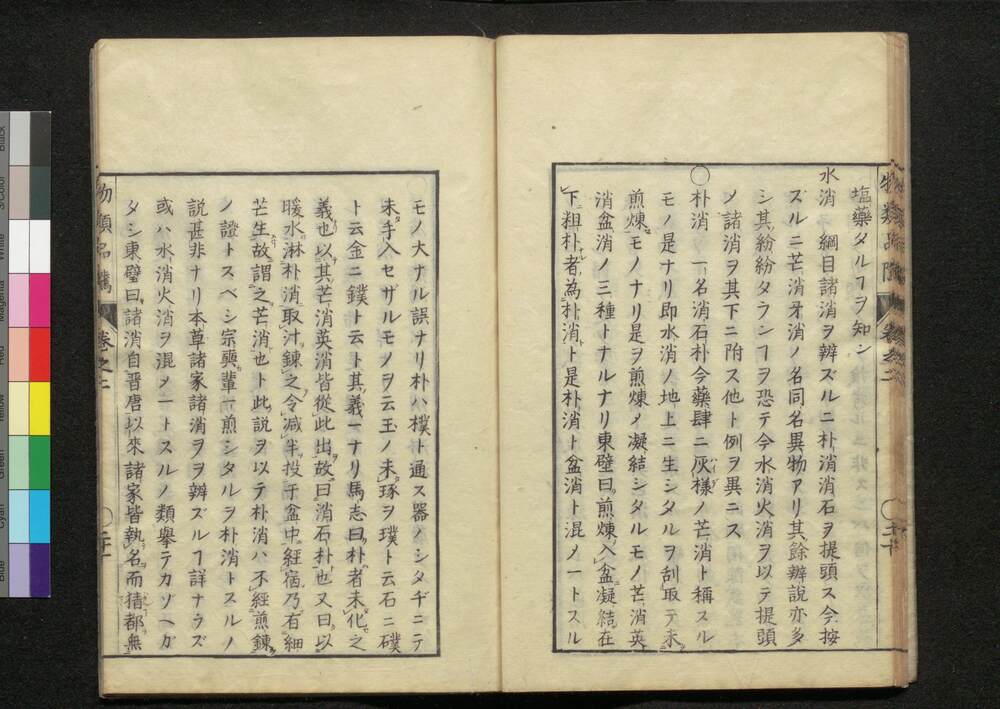 塩藥タルヿヲ知ン
水消 綱目諸消ヲ辨ズルニ朴消消石ヲ提頭ス今按
ズルニ芒消牙消ノ名同名異物アリ其餘辨說亦多
シ其紛紛タランヿヲ恐テ今水消火消ヲ以テ提頭
ノ諸消ヲ其下ニ附ス他ト例ヲ異ニス
○朴消 一名消石朴今藥肆ニ灰様ノ芒消ト稱スル
モノ是ナリ即水消ノ地上ニ生シタルヲ刮取テ未
煎煉モノナリ是ヲ煎煉メ凝結シタルモノ芒消英
消盆消ノ三種トナルナリ東璧曰煎煉入盆凝結在
下粗朴者為朴消ト是朴消ト盆消ト混メ一トスル
物類品隲 卷之二 ○二十
モノ大ナル誤ナリ朴ハ樸ト通ス器ノシタヂニテ
未手入セザルモノヲ云玉ノ未琢ヲ璞ト云石ニ礦
ト云金ニ鏷ト云ト其義一ナリ馬志曰朴者未化之
義也以其芒消英消皆從此出故曰消石朴也又曰以
暖水淋朴消取汁錬之令减半投于盆中經宿乃有細
芒生故謂之芒消也ト此説ヲ以テ朴消ハ不經煎錬
ノ證トスベシ宗奭輩一煎シタルヲ朴消トスルノ
説甚非ナリ本草諸家諸消ヲヲ辨ズルヿ詳ナラズ
或ハ水消火消ヲ混メ一トスルノ類舉テカゾヘガ
タシ東璧曰諸消自晋唐以來諸家皆執名而猜都無
物類品隲 卷之二 ○二十一
Black
3/Color
White
Magenta
Red
Yellow
Green
Cyan
Blue